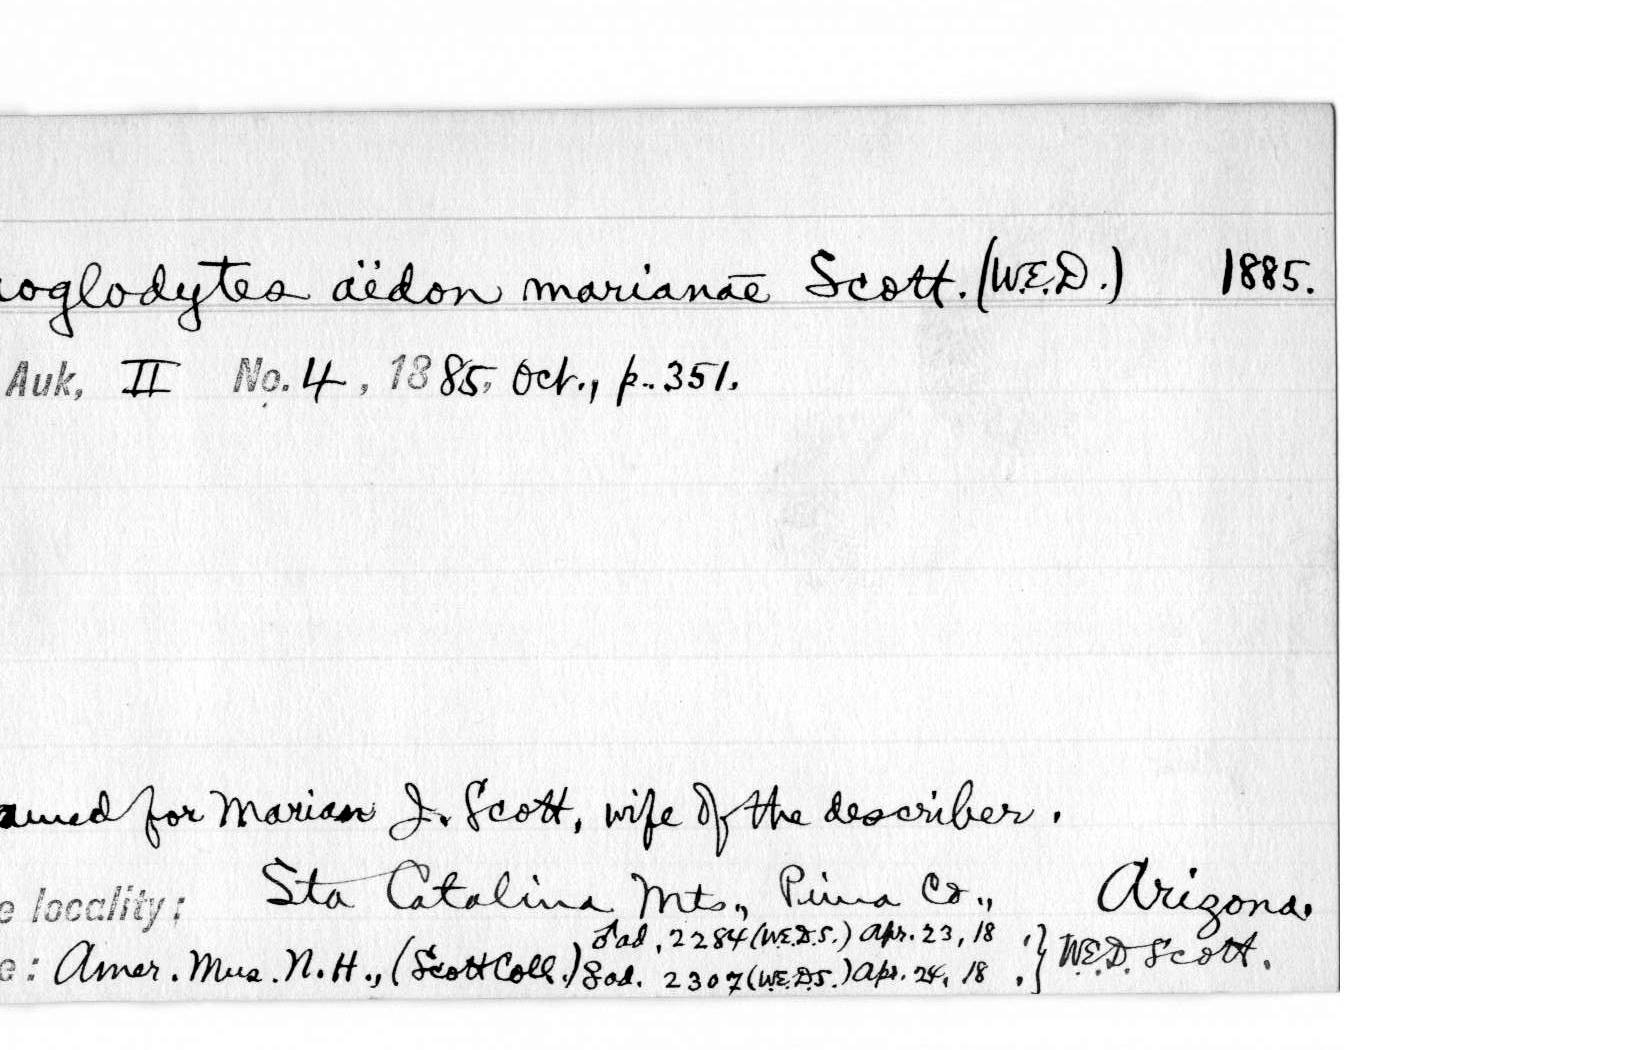 oglodytes aëdon marianae Scott. (W.E.D.) 1885.
Auk, II No. 4, 1885, Oct., p. 351.
amed for Marian J. Scott, wife of the describer.
e locality: Sta Catalina Mts., Pima Co., Arizona.
♂ad, 2284 (W.E.D.S.) Apr. 23, 18 , } W.E.D. Scott.
e: Amer. Mus. N.H., (Scott Coll.) ad. 2307 (W.E.D.S.) Apr. 24, 18 .